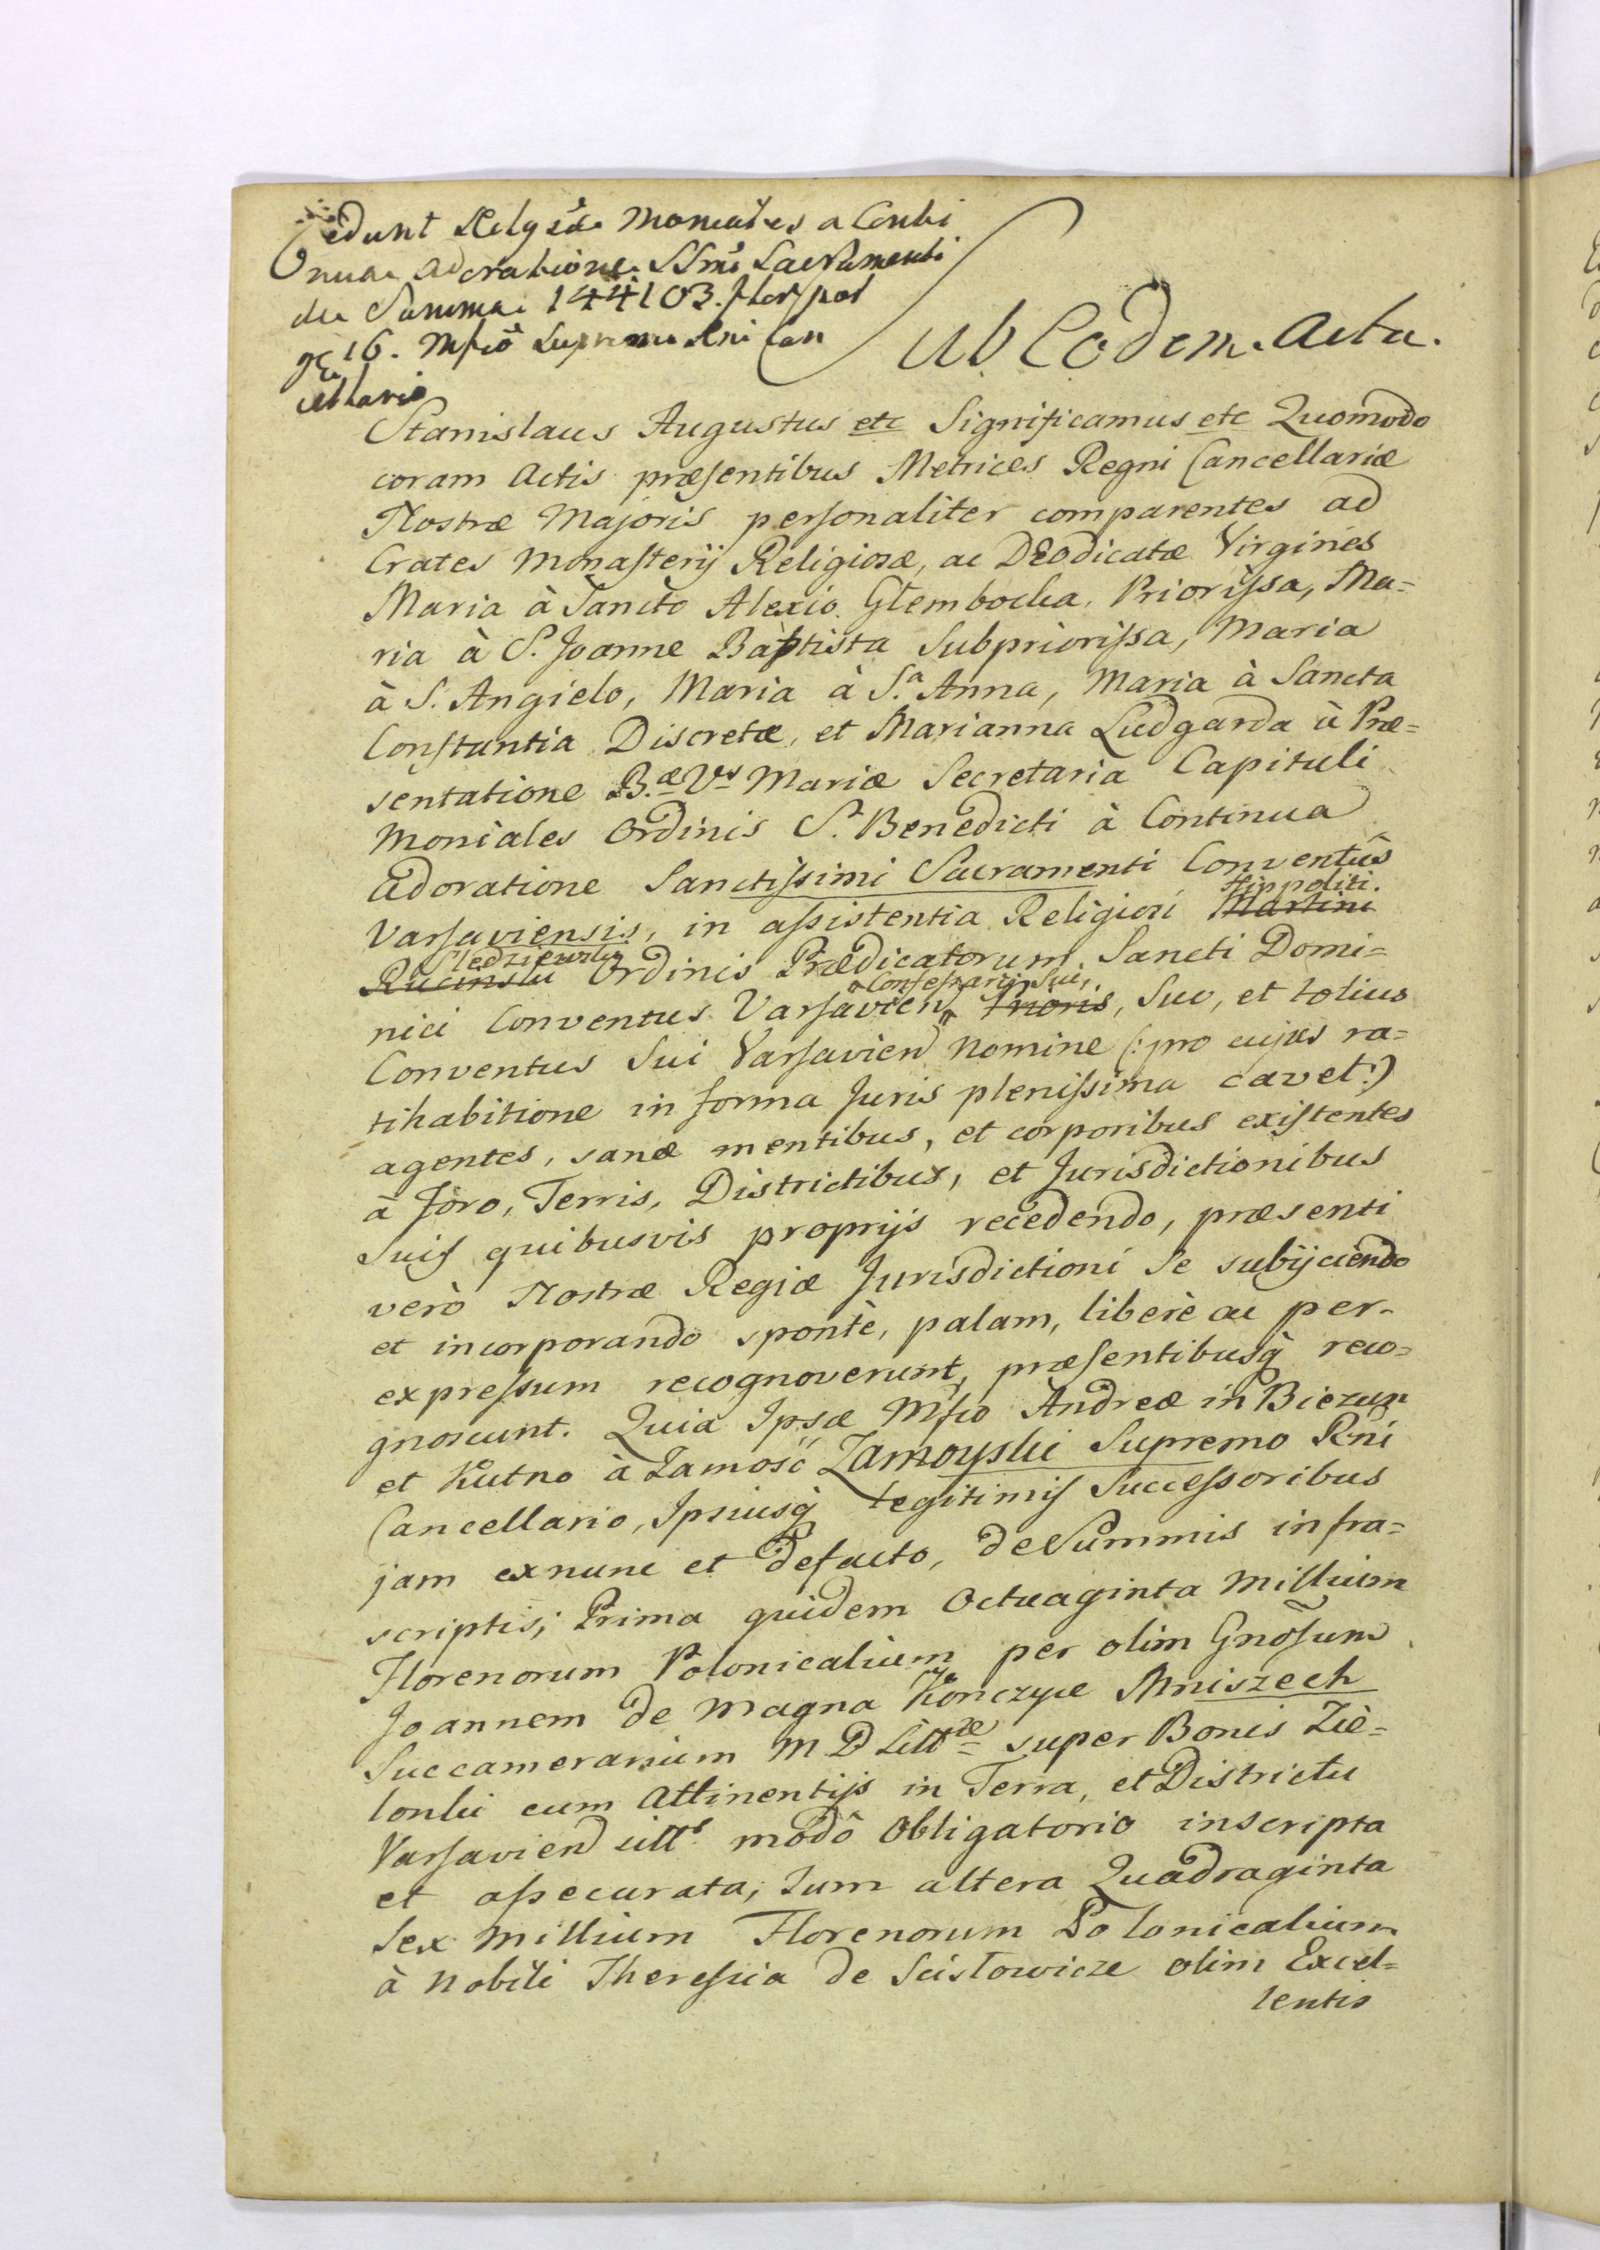 Cedunt Relgsae Moniales a Conti
nua adoratione SSmi Sacramenti
de Summa 144103. flor pol
gr 16. Mfico Supremo Rni Can
cellario
Sub Eodem Actu.
Stanislaus Augustus etc Significamus etc Quomodo
coram Actis præsentibus Metrices Regni Cancellariæ
Nostræ Majoris personaliter comparentes ad
Crates Monasterij Religiosæ, ac DEodicatæ Virgines
Maria à Sancto Alexio Głembocka, Priorissa, Ma=
ria à S. Joanne Baptista Subpriorissa, Maria
à S. Angielo, Maria à S.ª Anna, Maria à Sancta
Constantia Discretæ, et Marianna Ludgarda à Præ=
sentatione B.æ Vs Mariæ Secretaria Capituli
Moniales Ordinis S.t Benedicti à Continua
Adoratione Sanctissimi Sacramenti Conventûs
Hippoliti.
Varsaviensis, in assistentia Religiosi Martini
Sledziewski
Rucinski Ordinis Prædicatorum Sancti Domi=
Confessarij Sui,
nici Conventus Varsavien Prioris, Suo, et totius
Conventus Sui Varsavien nomine (: pro cujus ra=
tihabitione in forma Juris plenissima cavet :)
agentes, sanæ mentibus, et corporibus existentes
à Foro, Terris, Districtibus, et Jurisdictionibus
suis quibusvis proprijs recedendo, præsenti
verò Nostræ Regiæ Jurisdictioni se subijciendo
et incorporando spontè, palam, liberè ac per-
expressum recognoverunt, præsentibusq̀ reco=
gnoscunt. Quia Ipsæ Mfco Andreæ in Biezun
et Kutno à Zamość Zamoyski Supremo Rni
Cancellario, Ipsiusq̀ legitimis Successoribus
jam exnunc et defacto, de Summis infra=
scriptis; Prima quidem Octuaginta Millium
Florenorum Polonicalium per olim Gnosum
Joannem de Magna Kończyce Mniszech
Succamerarium M D Littæ super Bonis Zie=
lonki cum Attinentijs in Terra, et Districtu
Varsavien sitts modô Obligatorio inscripta
et assecurata; Tum altera Quadraginta
Sex Millium Florenorum Polonicalium
à Nobili Theresia de Scisłowicze olim Excel=
lentis